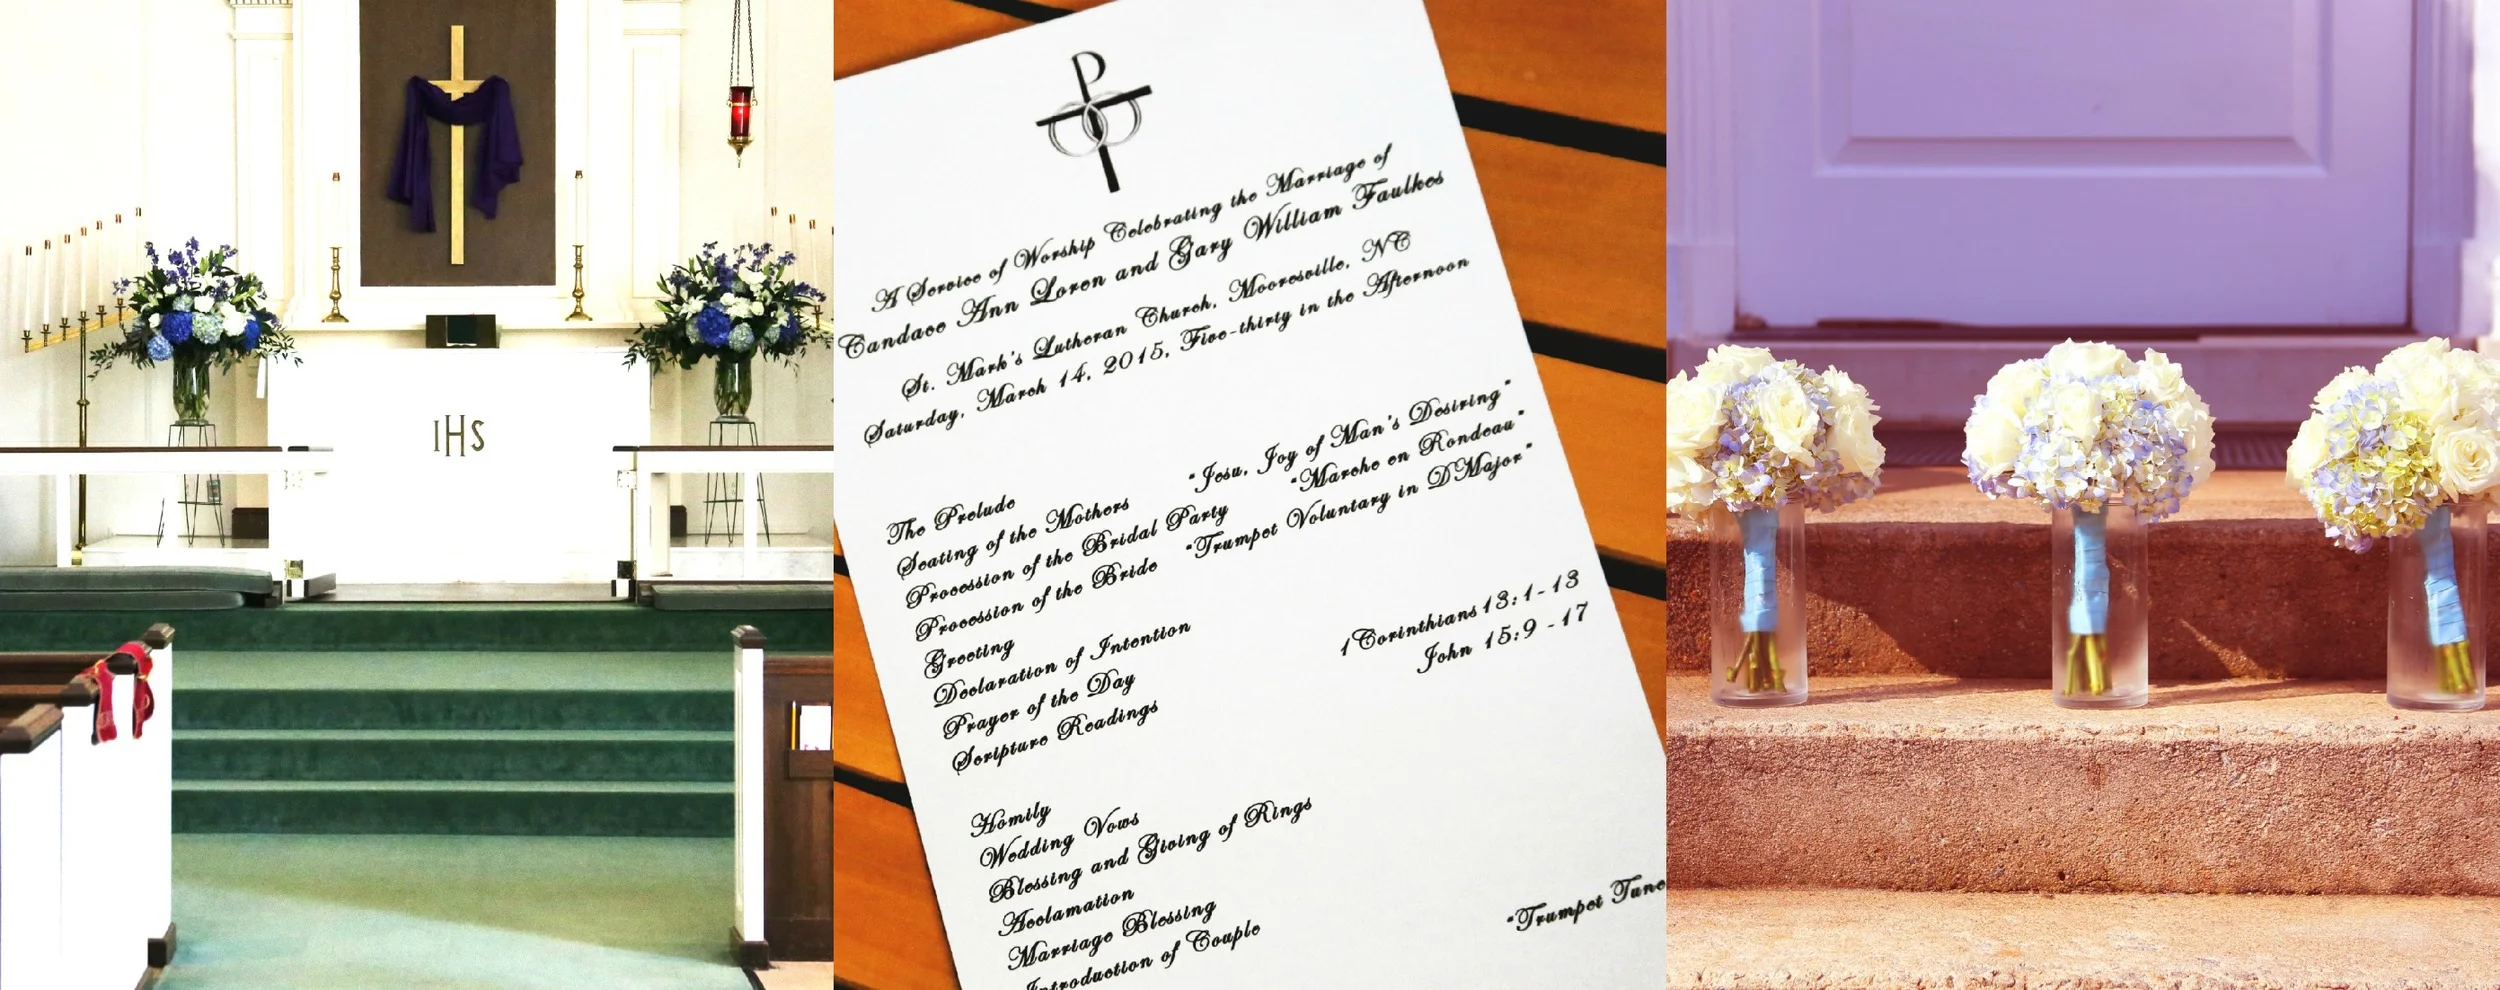 IHS
A Service of Worship Celebrating the Marriage of
Candace Ann Loren and Gary William Faulkes
St. Mark's Lutheran Church, Mooresville, NC
Saturday, March 14, 2015, Five-thirty in the Afternoon
The Prelude
Seating of the Mothers "Jesu, Joy of Man's Desiring"
Procession of the Bridal Party "Marche en Rondeau"
Procession of the Bride "Trumpet Voluntary in D Major"
Greeting
Declaration of Intention
Prayer of the Day
Scripture Readings 1 Corinthians 13:1-13
John 15:9 -17
Homily
Wedding Vows
Blessing and Giving of Rings
Acclamation
Marriage Blessing
Introduction of Couple "Trumpet Tune